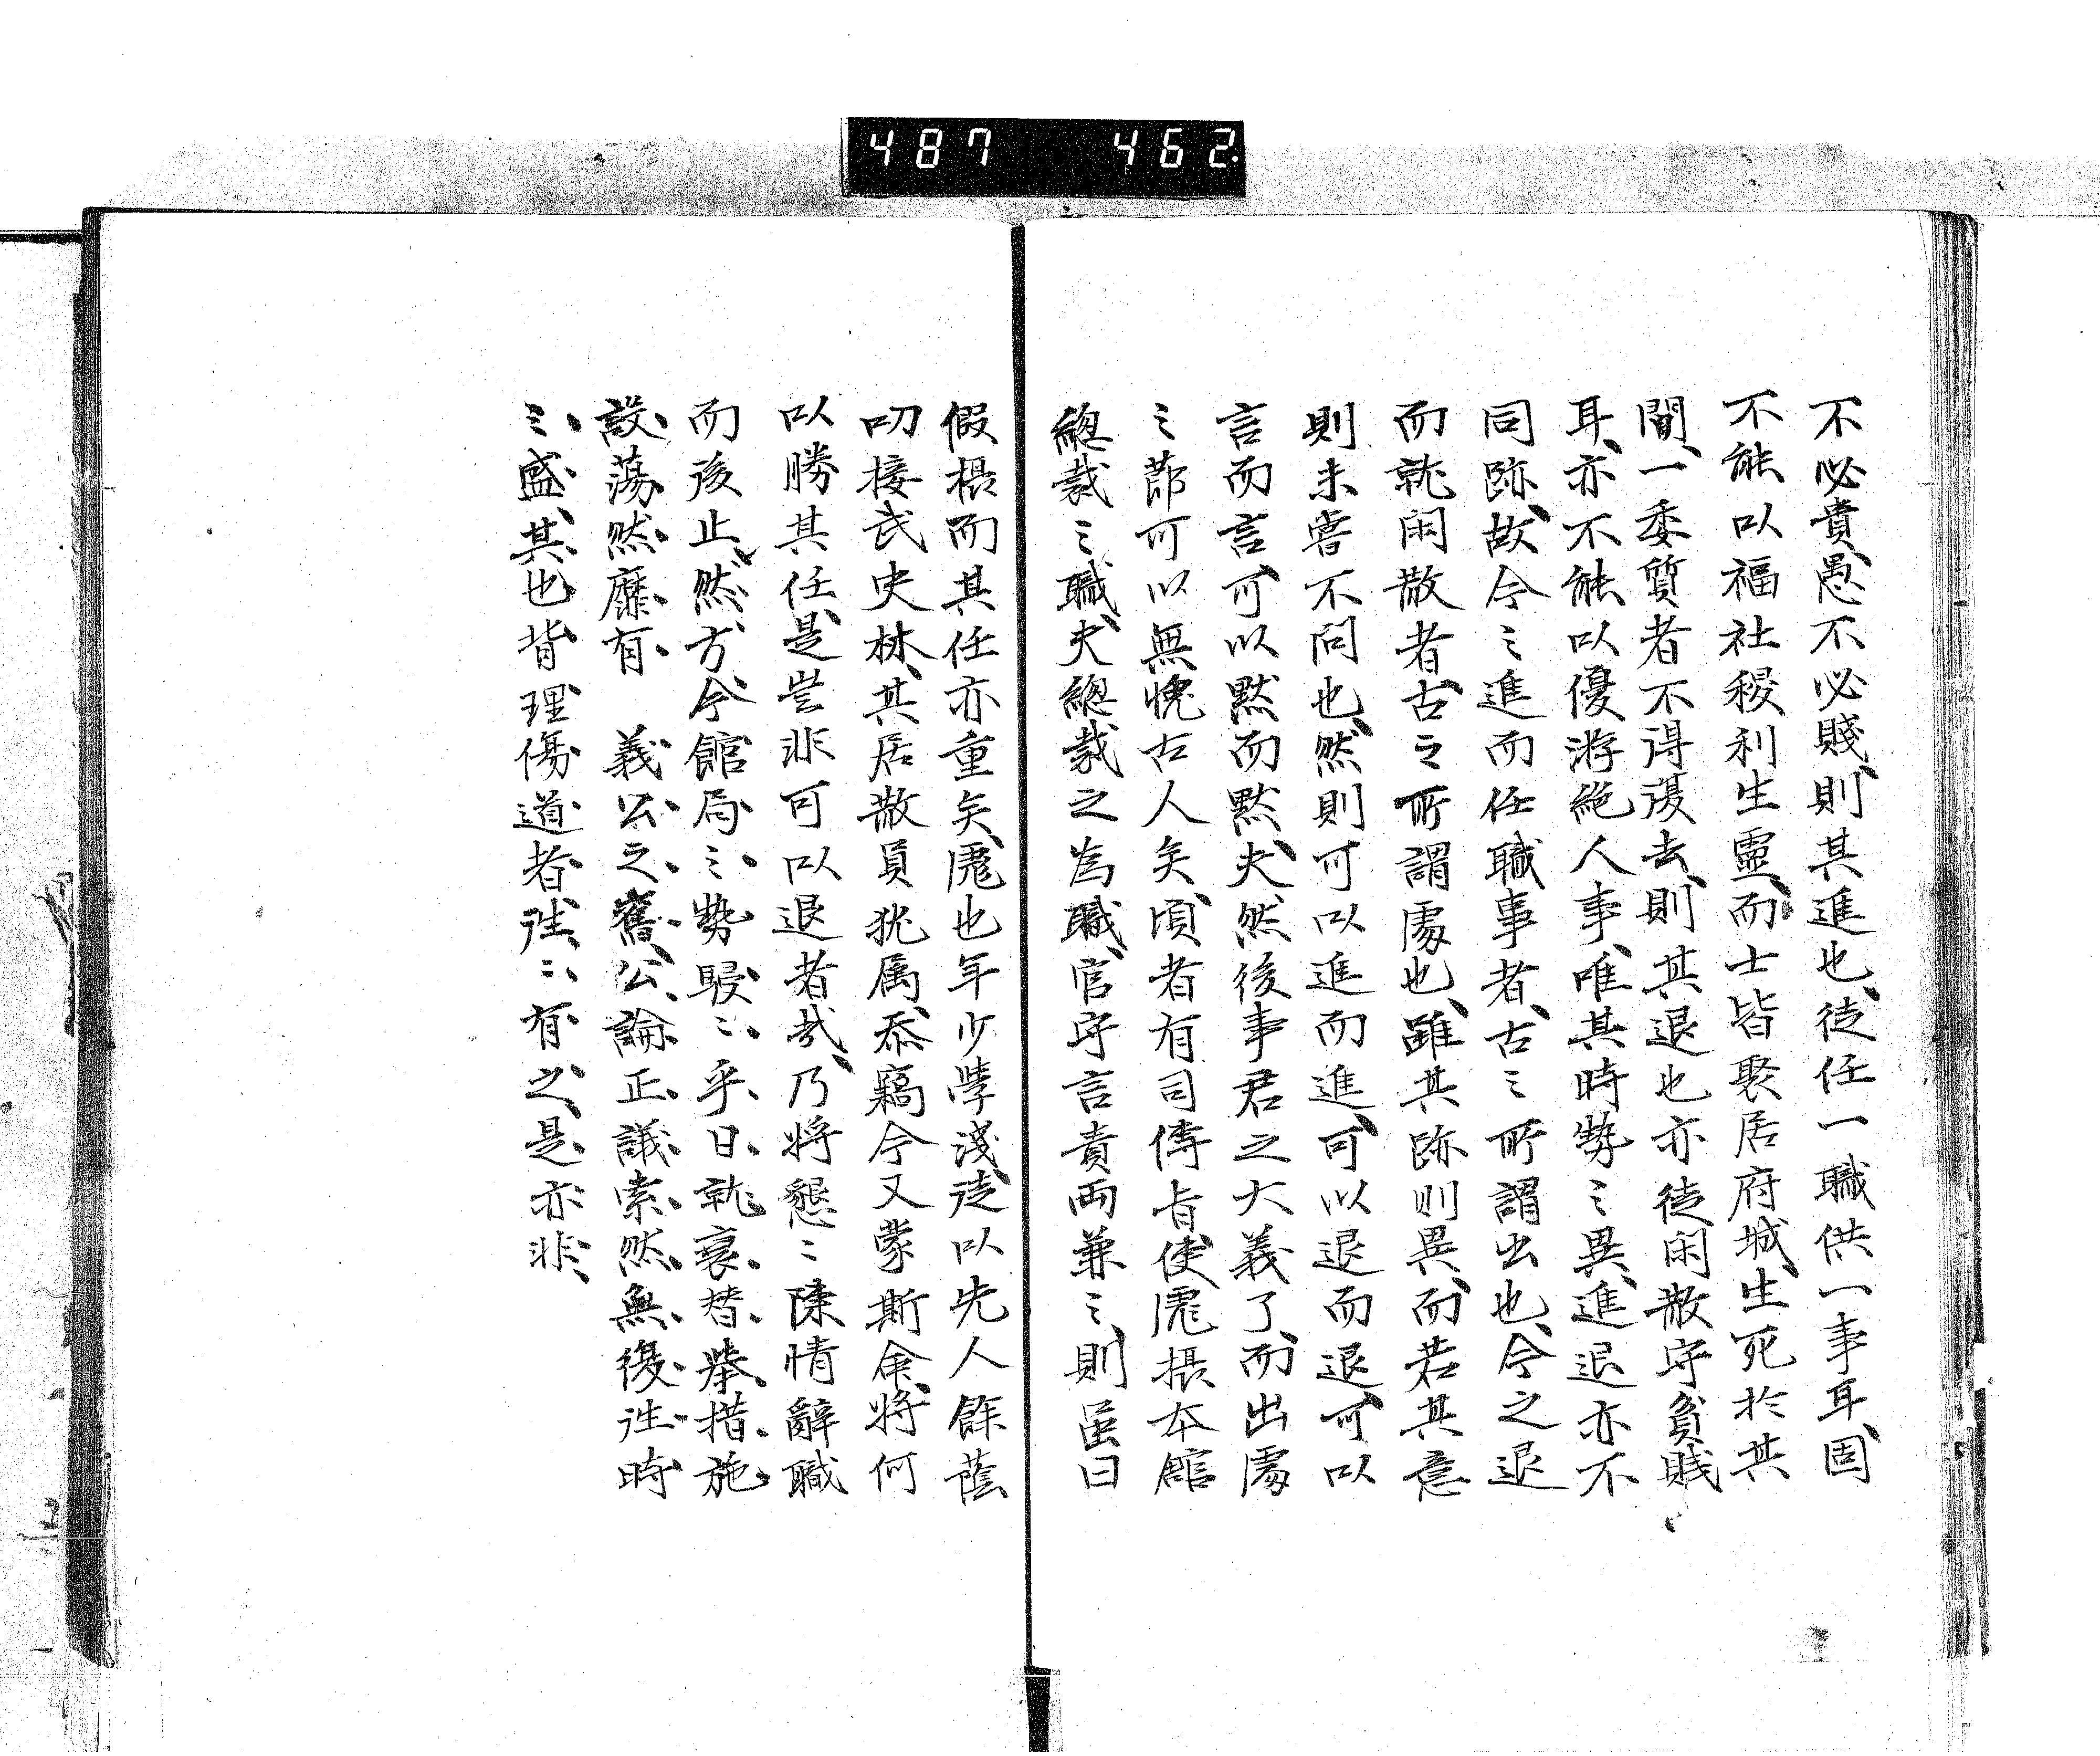 487 462
不必貴、愚不必賤、則其進也、徒任一職供一事耳、固
不能以福社稷利生靈、而士皆聚居府城、生死於其
間、一委質者不得復去、則其退也亦徒閑散守貧賤
耳、亦不能以優游絶人事、唯其時勢之異、進退亦不
同跡、故今之進而任職事者、古之所謂出也、今之退
而就閑散者、古之所謂處也、雖其跡則異、而若其意
則未嘗不同也、然則可以進而進、可以退而退、可以
言而言、可以黙而黙、夫、然後事君之大義了、而出處
之節可以無愧古人矣、頃者有司傳旨、使彪摂本館
總裁之職、夫總裁之為職、官守言責両兼之、則雖曰
假摂而其任亦重矣、彪也年少学浅、徒以先人餘蔭
叨接武史林、其居散員猶属忝竊今又蒙斯命、将何
以勝其任、是豈非可以退者哉、乃将懇々陳情辭職
而後止、然、方今館局之勢駸々乎日就衰替、挙措施
設、蕩然靡有　義公之舊、公論正議索然無復往時
之盛、其也背理傷道者往々有之、是亦非、